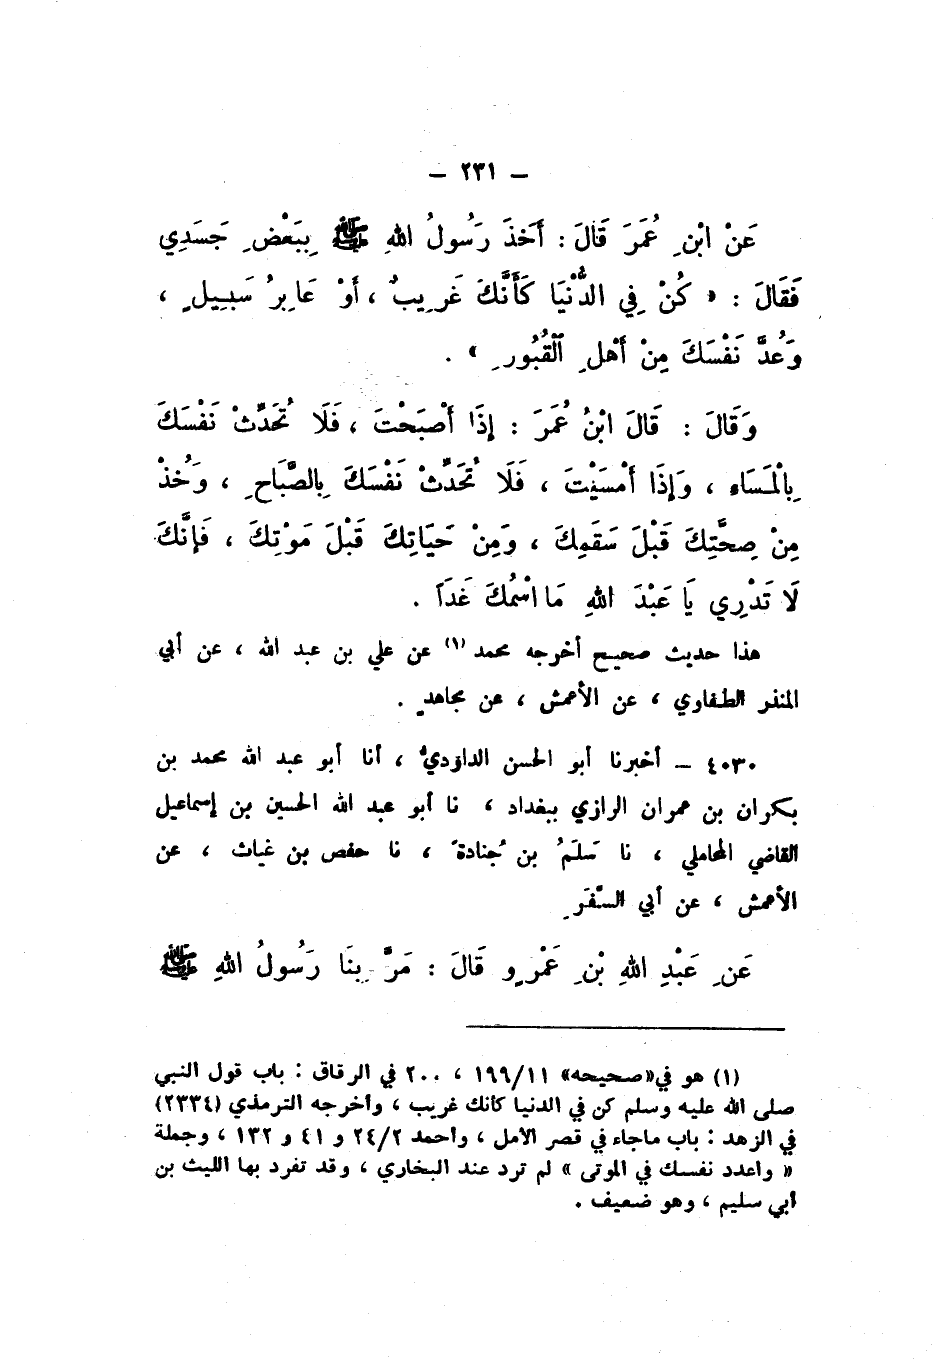 – ٢٣١ –
عَنْ ابْنِ عُمَرَ قَالَ : أَخَذَ رَسُولُ اللهِ ﷺ بِبَعْضِ جَسَدِي
فَقَالَ : « كُنْ فِي الدُّنْيَا كَأَنَّكَ غَرِيبٌ ، أَوْ عَابِرُ سَبِيلٍ ،
وَعُدَّ نَفْسَكَ مِنْ أَهْلِ الْقُبُورِ » .
وَقَالَ : قَالَ ابْنُ عُمَرَ : إِذَا أَصْبَحْتَ ، فَلَا تُحَدِّثْ نَفْسَكَ
بِالْمَسَاءِ ، وَإِذَا أَمْسَيْتَ ، فَلَا تُحَدِّثْ نَفْسَكَ بِالصَّبَاحِ ، وَخُذْ
مِنْ صِحَّتِكَ قَبْلَ سَقَمِكَ ، وَمِنْ حَيَاتِكَ قَبْلَ مَوْتِكَ ، فَإِنَّكَ
لَا تَدْرِي يَا عَبْدَ اللهِ مَا اسْمُكَ غَدَاً .
هذا حديث صحيح أخرجه محمد (١) عن علي بن عبد الله ، عن أبي
المنذر الطفاوي ، عن الأعمش ، عن مجاهدٍ .
٤٠٣٠ – أخبرنا أبو الحسن الداوديُّ ، أنا أبو عبد الله محمد بن
بكران بن عمران الرازي ببغداد ، نا أبو عبد الله الحسين بن إسماعيل
القاضي المحاملي ، نا سَلمُ بن جُنادةَ ، نا حفص بن غياث ، عن
الأعمش ، عن أبي السَّفَرِ
عَنِ عَبْدِ اللهِ بْنِ عَمْرٍو قَالَ : مَرَّ بِنَا رَسُولُ اللهِ ﷺ
(١) هو في«صحيحه» ١٩٩/١١ ، ٢٠٠ في الرقاق : باب قول النبي
صلى الله عليه وسلم كن في الدنيا كأنك غريب ، وأخرجه الترمذي (٢٣٣٤)
في الزهد : باب ماجاء في قصر الأمل ، وأحمد ٢٤/٢ و ٤١ و ١٣٢ ، وجملة
« واعدد نفسك في الموتى » لم ترد عند البخاري ، وقد تفرد بها الليث بن
أبي سليم ، وهو ضعيف .